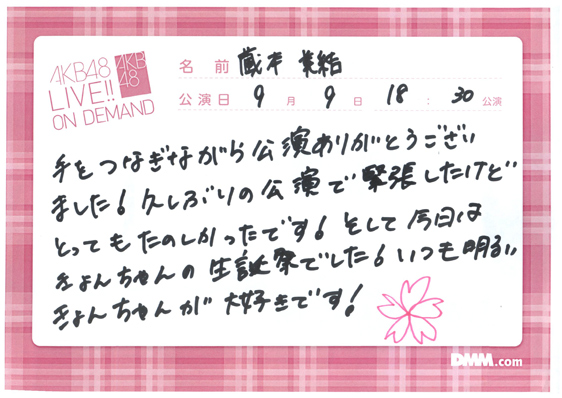 AKB48
LIVE!!
ON DEMAND
AKB
48
名前 蔵本 美結
公演日 9月9日 18:30公演
手をつなぎながら公演ありがとうござい
ました!久しぶりの公演で緊張したけど
とってもたのしかったです!そして今日は
きょんちゃんの生誕祭でした!いつも明るい
きょんちゃんが大好きです!
DMM.com